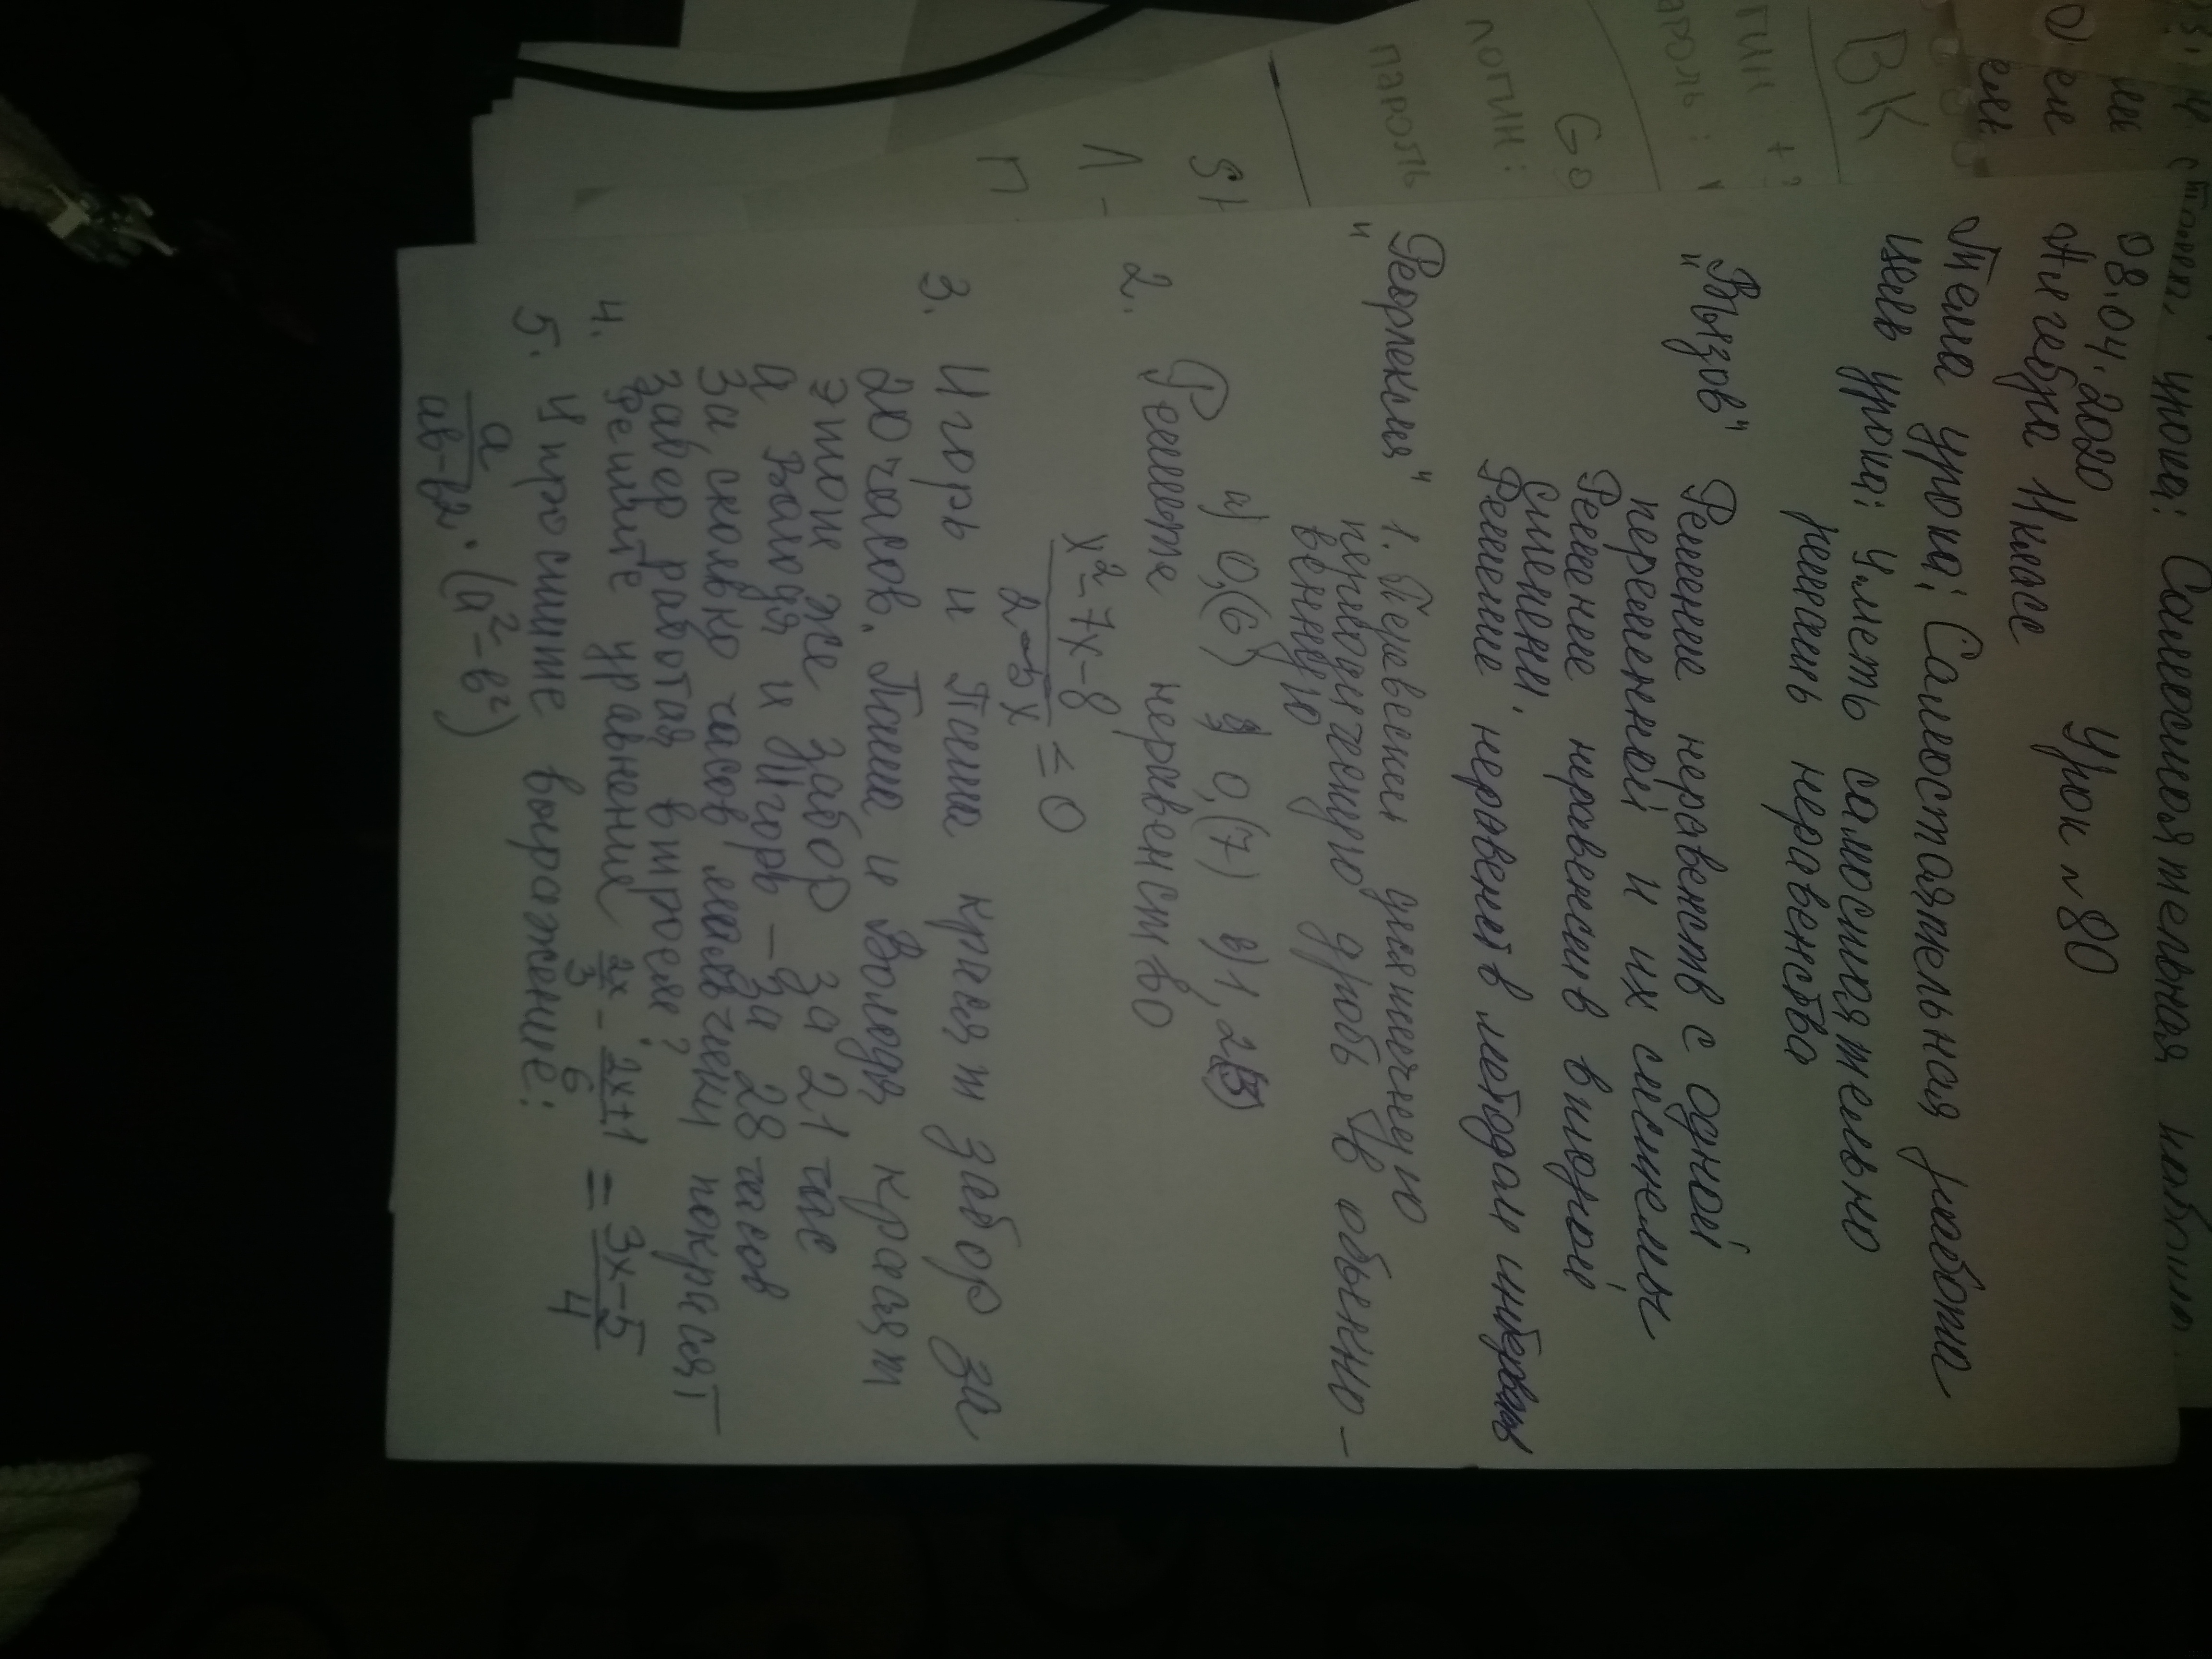 урока: Самостоятельная работа.
08.04.2020 Урок №80
Алгебра 11 класс
Тема урока: Самостоятельная работа
Цель урока: Уметь самостоятельно
решать неравенства
"Вызов" Решение неравенств с одной
переменной и их системы
Решение неравенств второй
степени.
Решение неравенств методом интервалов
"Рефлексия" 1. Перевести
периодическую дробь в обыкно-
венную
а) 0,(6) б) 0,(7) в) 1,2(5)
2. Решите неравенство
x²-7x-8
2-5x
≤ 0
3. Игорь и Паша красят забор за
20 часов. Паша и Володя красят
этот же забор за 21 час
а Володя и Игорь - за 28 часов
За сколько часов мальчики покрасят
забор работая втроем?
4. Решите уравнение 2x/3 - 2x+1/6 = 3x-5/4
5. Упростите выражение:
a/ab-b² · (a²-b²)
ВК
Go
логин:
пароль
Л -
П